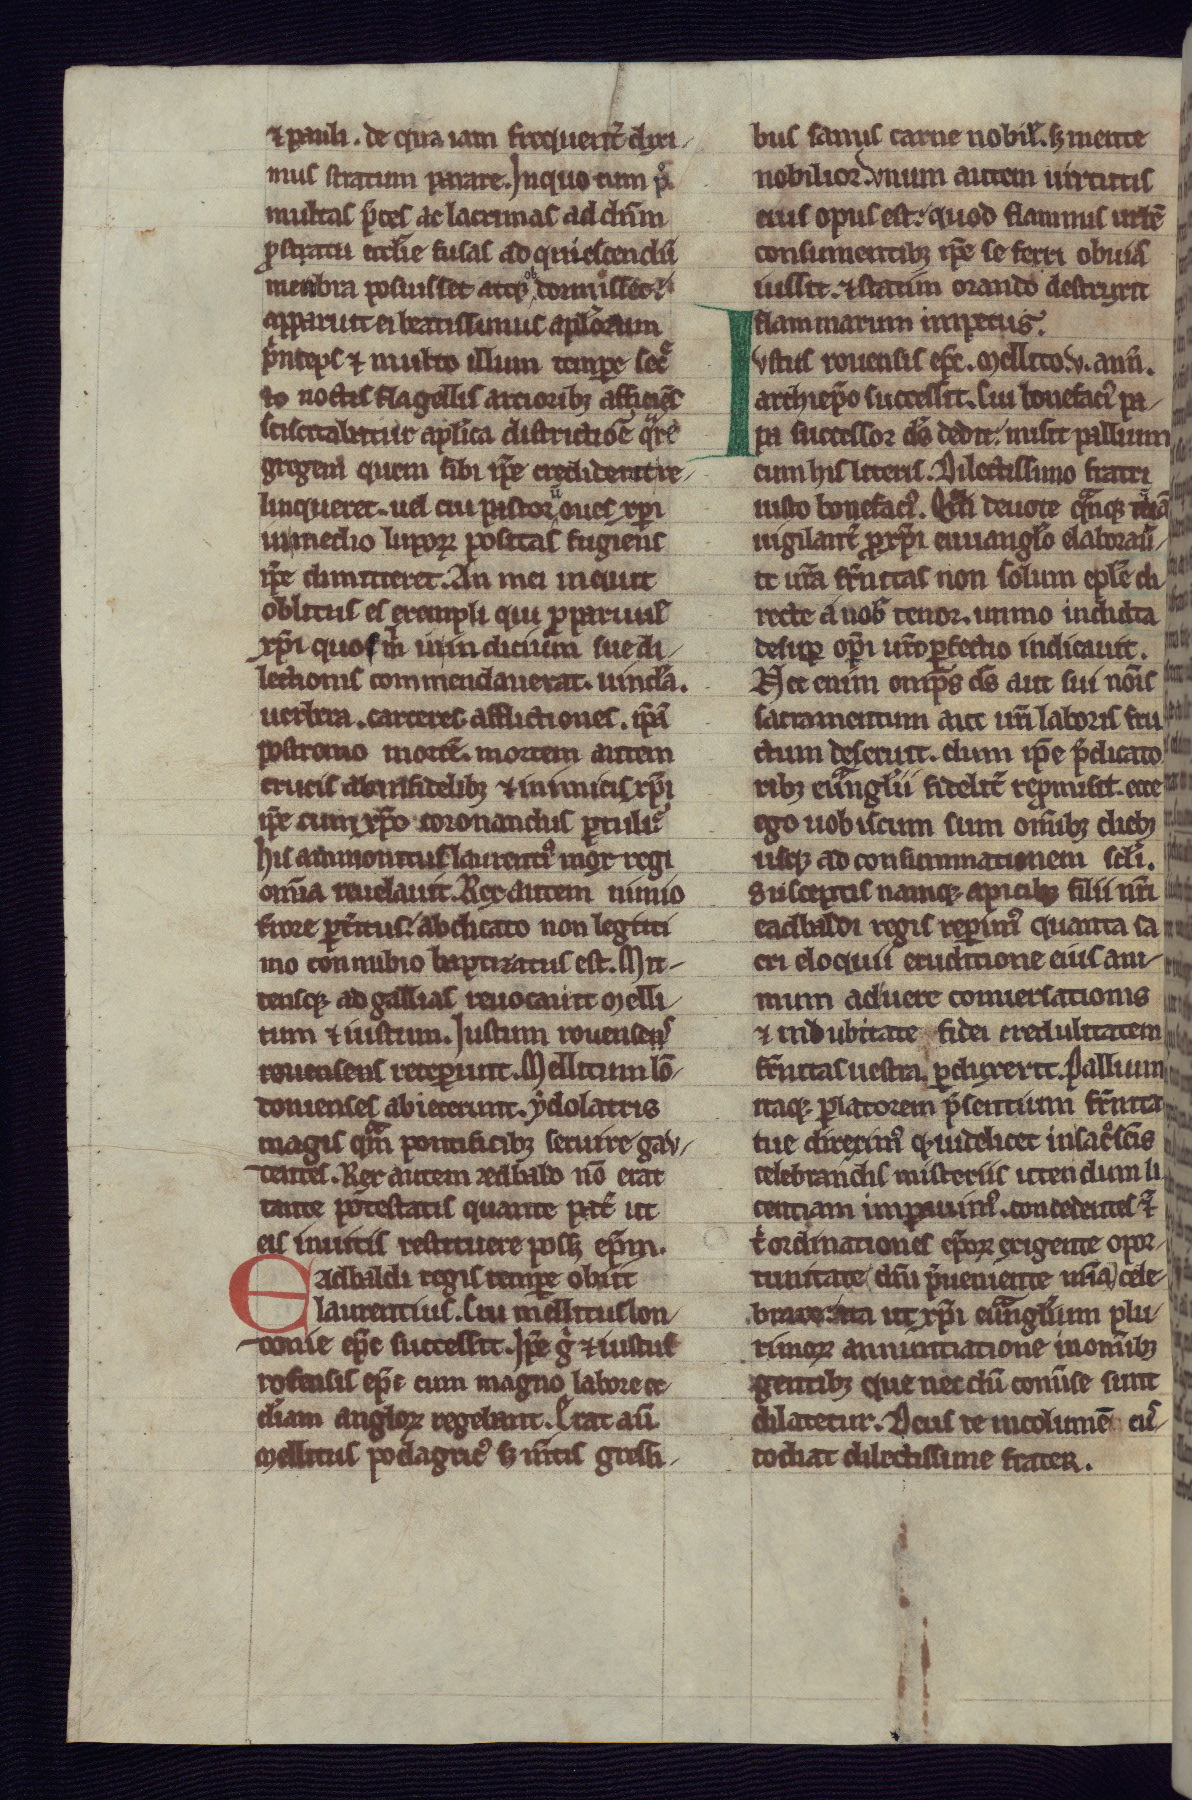 ⁊ pauli . de qua iam frequent̄ dixi-
mus stratum parare. Inquo cum p̊
multas p̄ces ac lacrimas ad dn̄m
ꝓ statu eccl̄ie fusas ad quiescendū
membra posuisset atqꝫ obdormisset.
apparuit ei beatissimus apl̄orum
p̄nceps ⁊ multo illum tempe secᵉ
to noctis flagellis arcioribꝫ afficiēs
sciscitabatur apl̄ica districtiōe qͣre
gregem quem sibi ip̄e crediderat re-
linqueret. uel cui pastorū oues xp̄i
in medio luporꝝ positas fugiens
ip̄e dimitteret. An mei inquit
oblitus es exempli qui ꝓ paruul̄
xp̄i quos m̄ in indicium sue di-
lectionis commendauerat. uincl̄a.
uerbera . carceres afflictiones. ip̄ā
postremo mortē. mortem autem
crucis ab infidelibꝫ ⁊ inimicis xp̄i
ip̄e cum xp̄o coronandus ꝑtuli.
his ammonitus laurentiꝰ mox regi
om̄ia reuelauit. Rex autem nimio
timore ꝑt̄itus. abdicato non legiti
mo connubio baptizatus est. Mit-
tensqꝫ ad gallias reuocauit Melli-
tum ⁊ iustum. Iustum rouenses
rouensens receperunt. Mellitum lō-
donienses abiecerunt. ydolatris
magis qͣm pontificibꝫ seruire gau-
dentes. Rex autem ædbald nō erat
tante potestatis quante pat̄ ut
eis inuitis restituere possꝫ ep̄m.
Eadbaldi regis tempe obiit
laurentius. Cui mellitus lon-
donie ep̄c successit. Ip̄e g̊ ⁊ iustus
rofensis ep̄c cum magno labore ec-
cl̄iam anglorꝝ regebant. Erat aū
Mellitus podagricꝰ sꝫ m̄tis gressi-
bus sanus carne nobil̄. sꝫ mente
nobilior. Unum autem uirtutis
eius opus est. quod flammis urbē
consumentibꝫ ip̄e se ferri obuiā
iussit. ⁊ statim orando destruxit
flammarum impetus.
Iustus rouensis ep̄c. Mellito .v. ann̄.
archiep̄o successit. Cui bonefaciꝰ pa-
pa successor ds̄ dedit. misit pallium
cum his literis. Dilectissimo fratri
iusto bonefaciꝰ. Qͣm deuote qͣmqꝫ etiā
uigilant̄ ꝓ xp̄i euuangl̄o elaborau-
it ur̄a frn̄itas non solum epl̄e di
recte a nob̄ tenor. immo indulta
desuꝑ op̄i ur̄o ꝑfectio indicauit.
Nec enim omp̄s ds̄ aut sui nōis
sacramentum aut ur̄i laboris fru
ctum deseruit. dum ip̄e p̄dicato
ribꝫ euͣnglii fidelit̄ repromisit. ecce
ego uobiscum sum om̄ibꝫ diebꝫ
usqꝫ ad consummationem scl̄i.
Susceptis namqꝫ apicibꝫ filii nr̄i
eadbaldi regis reperimꝰ quanta sa
cri eloquii eruditione eius ani-
mum ad uere conuersationis
⁊ indubitate fidei credulitatem
frn̄itas uestra ꝑduxerit. Pallium
itaqꝫ ꝑlatorem p̄sentium frn̄ita
tue direximꝰ quidelicet in sacͦscīs
celebrandis misteriis utendum li
centiam imꝑtiuimꝰ. concedentes
t̄ ordinationes ep̄orꝝ exigente opor-
tunitate dn̄i p̄ueniente mīa cele-
brare. ita ut xp̄i euͣngl̄ium plu-
rimorꝝ annuntiatione in om̄ibꝫ
gentibꝫ que nec dū conuerse sunt
dilatetur. Deus te incolumē cus
todiat dilectissime frater.